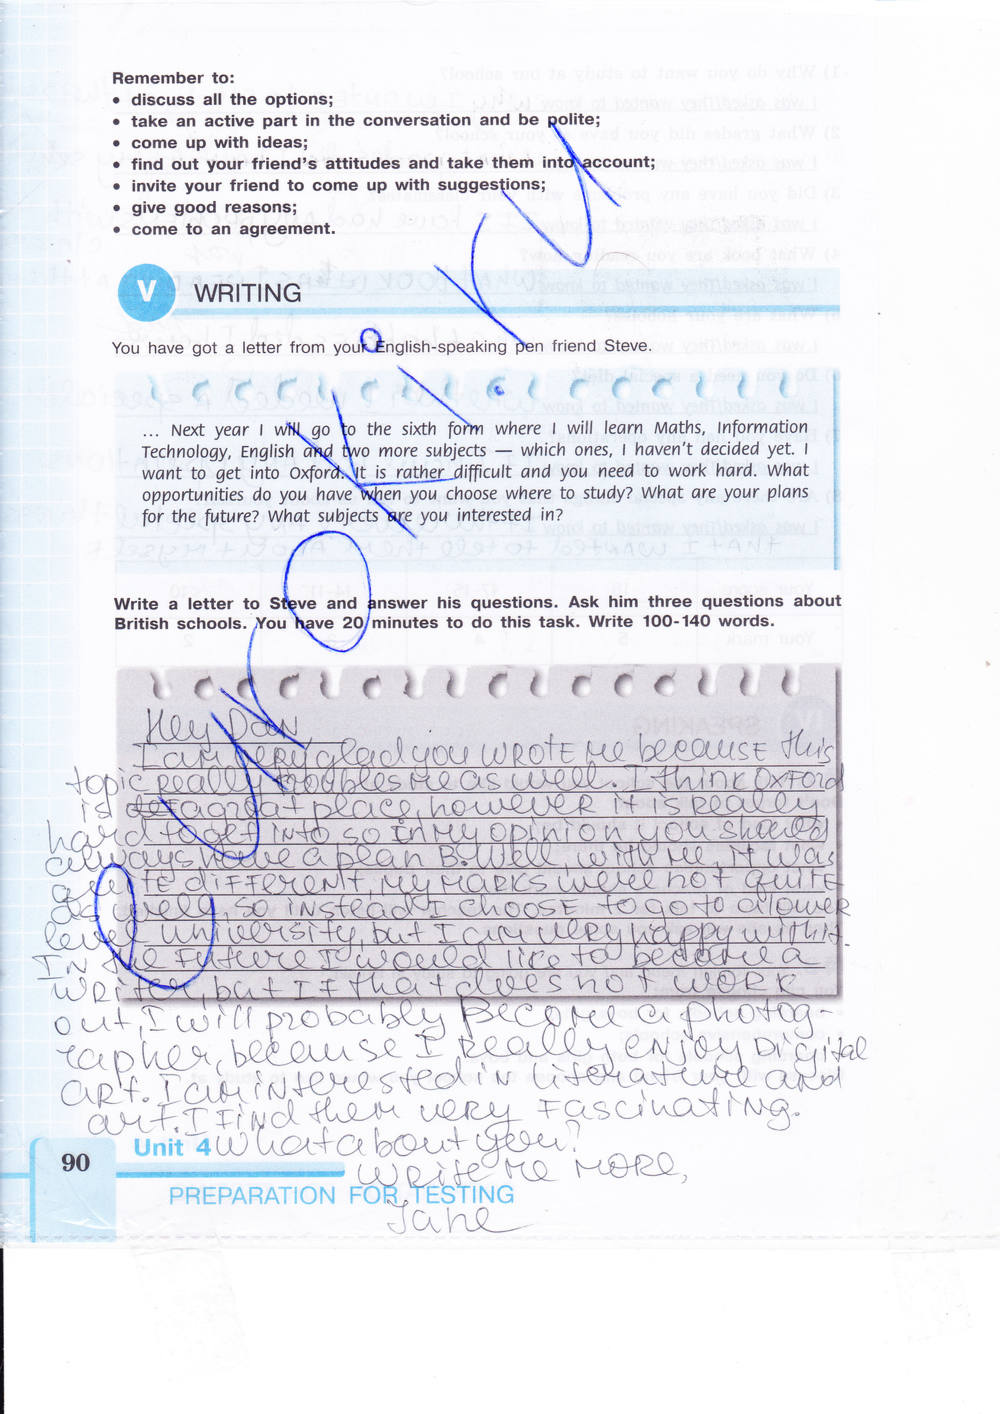 Remember to:
• discuss all the options;
• take an active part in the conversation and be polite;
• come up with ideas;
• find out your friend's attitudes and take them into account;
• invite your friend to come up with suggestions;
• give good reasons;
• come to an agreement.
V WRITING
You have got a letter from your English-speaking pen friend Steve.
... Next year I will go to the sixth form where I will learn Maths, Information
Technology, English and two more subjects — which ones, I haven't decided yet. I
want to get into Oxford. It is rather difficult and you need to work hard. What
opportunities do you have when you choose where to study? What are your plans
for the future? What subjects are you interested in?
Write a letter to Steve and answer his questions. Ask him three questions about
British schools. You have 20 minutes to do this task. Write 100-140 words.
Hey Dan,
I am very glad you wrote me because this
topic really troubles me as well. I think Oxford
is a great place, however it's really
hard to get into so in my opinion you should
always have a plan B. Well, with me, it was
quite different, my marks were not quite
as well, so instead I choose to go to a lower
level university, but I am very happy with it.
In the future I would like to become a
writer, but if that does not work
out, I will probably become a photog
rapher, because I really enjoy digital
art. I am interested in literature and
art. I find them very fascinating.
What about you?
Write me more,
Jane
90
Unit 4
PREPARATION FOR TESTING